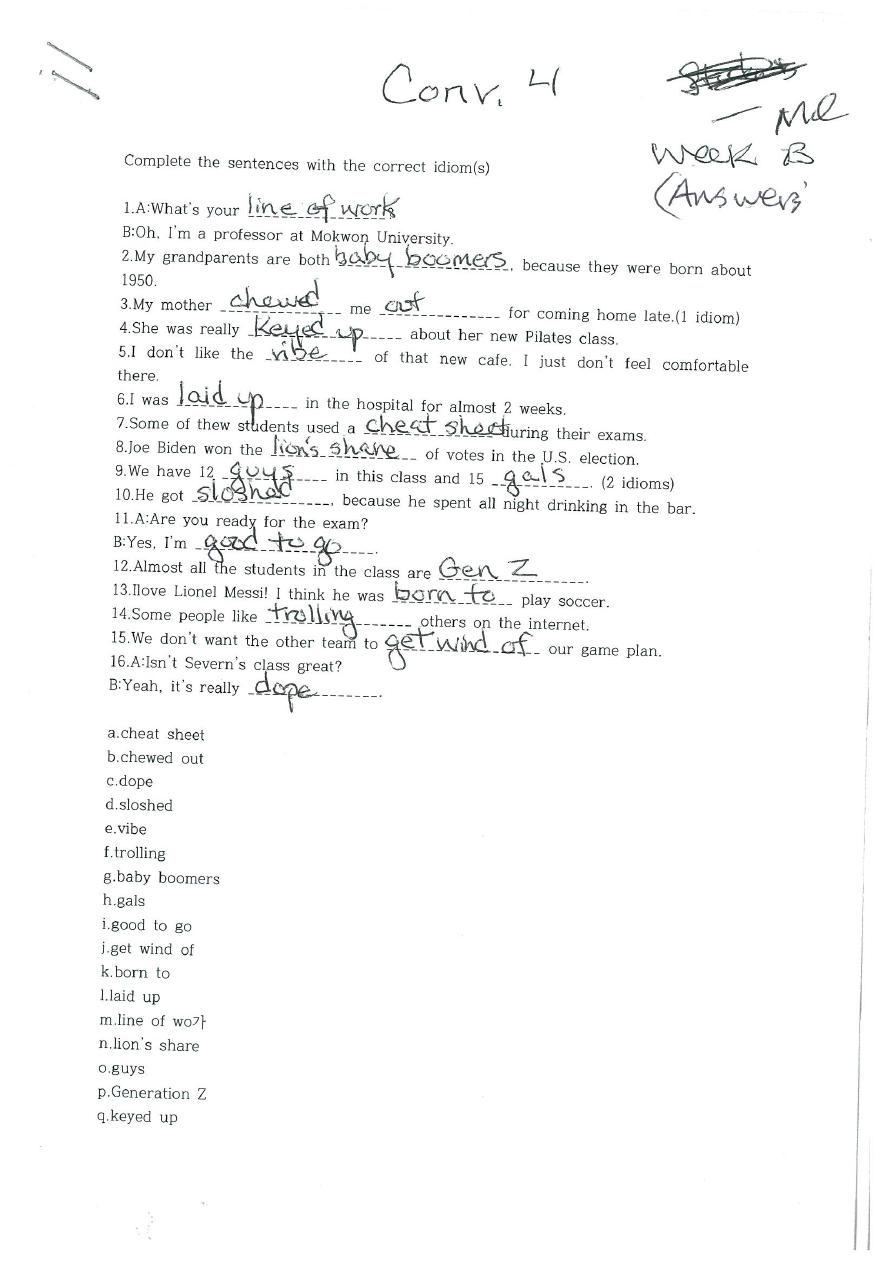 Conv. 4
Week B
(Answers)
Complete the sentences with the correct idiom(s)
1.A:What's your line of work
B:Oh, I'm a professor at Mokwon University.
2.My grandparents are both baby boomers, because they were born about
1950.
3.My mother chewed me out for coming home late.(1 idiom)
4.She was really keyed up about her new Pilates class.
5.I don't like the vibe of that new cafe. I just don't feel comfortable
there.
6.I was laid up in the hospital for almost 2 weeks.
7.Some of thew students used a cheat sheet during their exams.
8.Joe Biden won the lion's share of votes in the U.S. election.
9.We have 12 guys in this class and 15 gals. (2 idioms)
10.He got sloshed, because he spent all night drinking in the bar.
11.A:Are you ready for the exam?
B:Yes, I'm good to go.
12.Almost all the students in the class are Gen Z.
13.Ilove Lionel Messi! I think he was born to play soccer.
14.Some people like trolling others on the internet.
15.We don't want the other team to get wind of our game plan.
16.A:Isn't Severn's class great?
B:Yeah, it's really dope.
a.cheat sheet
b.chewed out
c.dope
d.sloshed
e.vibe
f.trolling
g.baby boomers
h.gals
i.good to go
j.get wind of
k.born to
l.laid up
m.line of wo가
n.lion's share
o.guys
p.Generation Z
q.keyed up